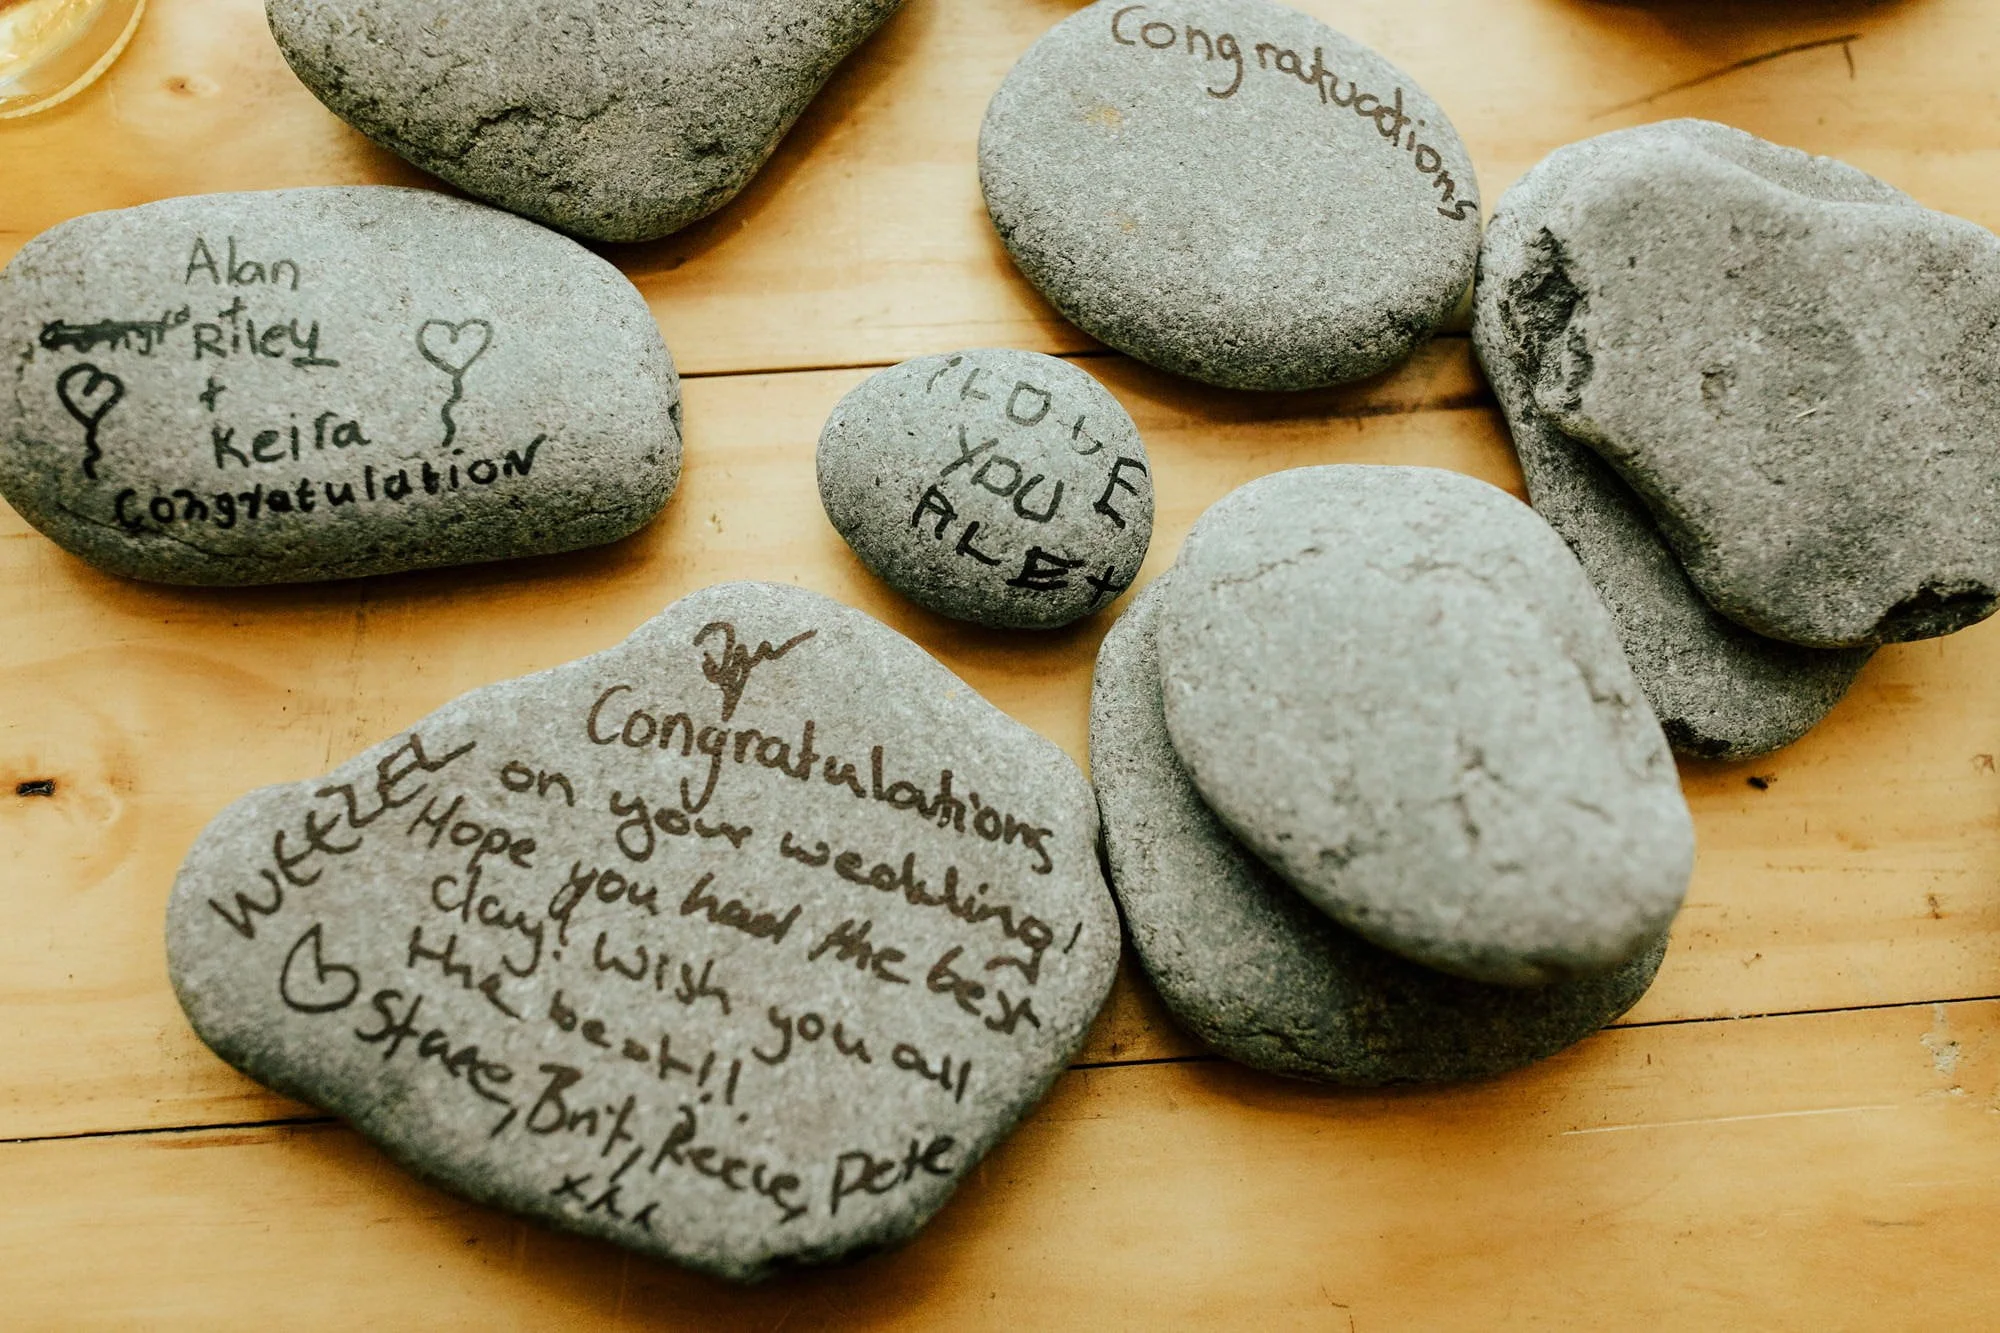 Congratuations
Alan
+
Riley
+
Keira
Congratulation
I LOVE
YOU
ALEX
Congratulations
WEEZEL
on your wedding!
Hope you had the best
day! Wish you all
the best!!
Stacee, Brit, Reece, Pete
xxx